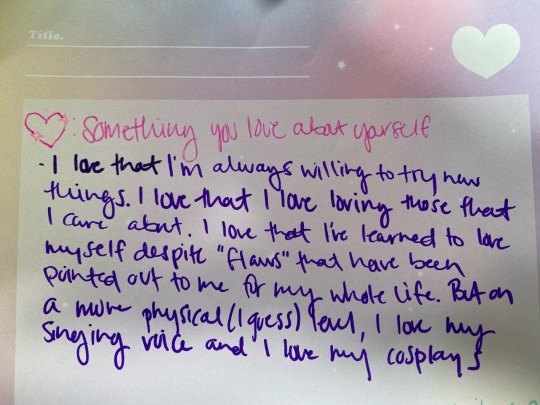 Title.
♡: Something you love about yourself
- I love that I'm always willing to try new
things. I love that I love loving those that
I care about. I love that I've learned to love
myself despite "flaws" that have been
pointed out to me for my whole life. But on
a more physical (I guess) level, I love my
singing voice and I love my cosplays